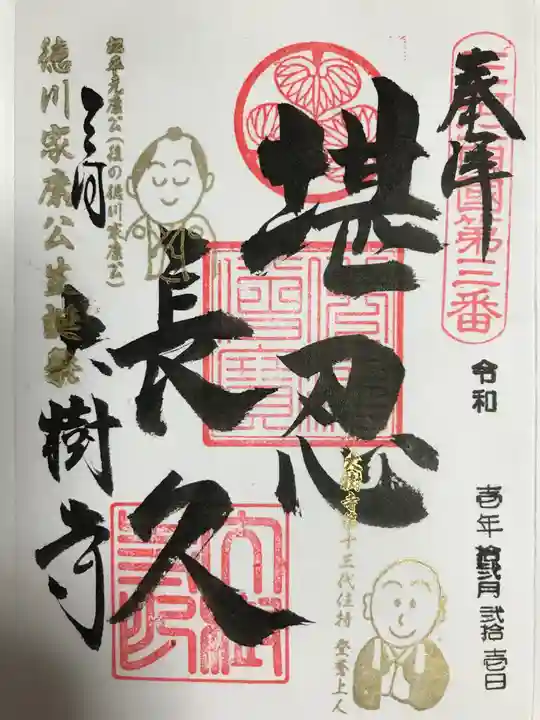 奉拝
三河西國第三番
令和
壱年 拾弐月 弐拾壱日
堪忍
長久
大樹寺第十三代住持 登誉上人
松平元康公(後の徳川家康公)
三河
大樹寺
徳川家康公生誕祭